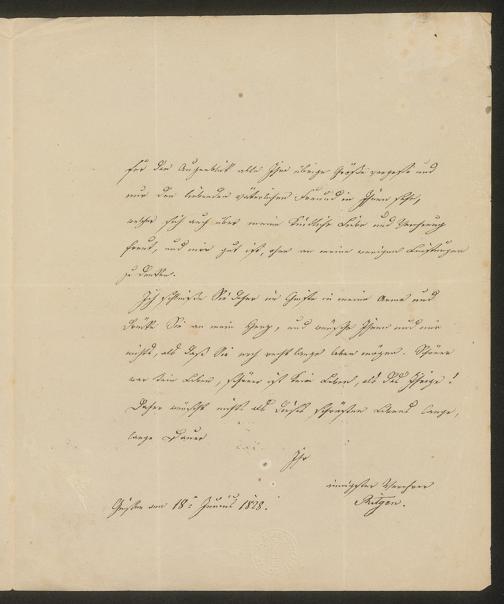 für den Augenblick alle Ihre übrige Größe vergesse und
nur den liebenden väterlichen Freund in Ihnen sehe,
welcher sich auch über meine kindliche Liebe und Verehrung
freut, und mir gut ist, ohne an meine wenigen Leistungen
zu denken.
Ich schließe Sie daher im Geiste in meine Arme und
drücke Sie an mein Herz, und wünsche Ihnen und mir
nichts, als daß Sie noch recht lange leben mögen. Schöner
war kein Leben, schöner ist kein Leben, als das Ihrige!
Daher wünscht nichts als dieses schönsten Abend lange,
lange Dauer
Ihr
innigster Verehrer
Ritgen.
Gießen am 18. Junius 1828.